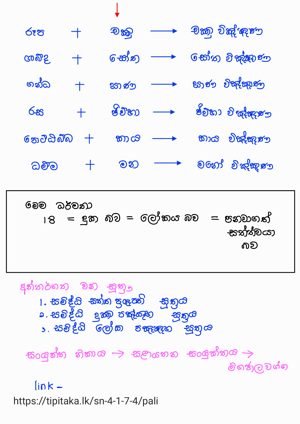 රූප + චක්‍ඛු → චක්‍ඛු විඤ්ඤාණ
ශබ්ද + සෝත → සෝත විඤ්ඤාණ
ගන්ධ + ඝාණ → ඝාණ විඤ්ඤාණ
රස + ජිව්හා → ජිව්හා විඤ්ඤාණ
+ කාය → කාය විඤ්ඤාණ
ධම්ම + මන → මනෝ විඤ්ඤාණ
මෙම
18 = දුක බව = ලෝකය බව =
සත්ත්වයා
බව
වන සූත්‍ර
1. සමිද්ධි සත්ත සූත්‍රය
2. සමිද්ධි දුක්ඛ සූත්‍රය
3. සමිද්ධි ලෝක සූත්‍රය
සංයුත්ත නිකාය → සළායතන සංයුත්තය →
මිගජාලවග්ග
link -
https://tipitaka.lk/sn-4-1-7-4/pali